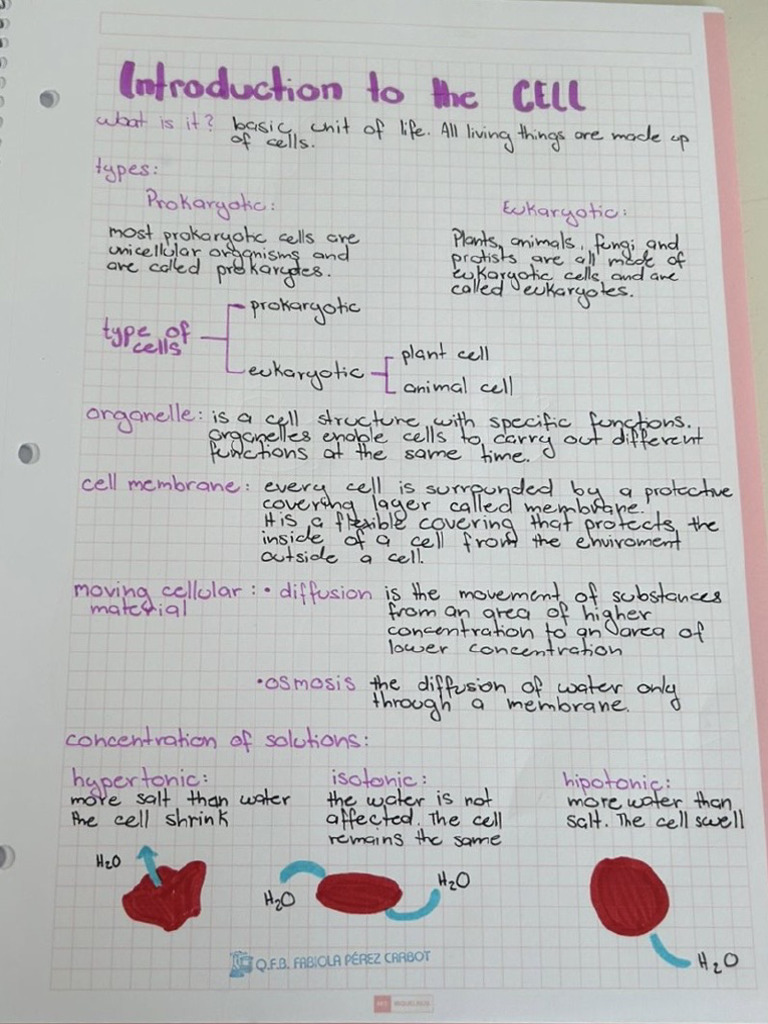 Introduction to the CELL
what is it? basic unit of life. All living things are made up
of cells.
types:
Prokaryotic:
most prokaryotic cells are
unicellular organisms and
are called prokarydes.
Eukaryotic:
Plants, animals, fungi and
protists are all made of
eukaryotic cells, and are
called eukaryotes.
type of
cells
prokaryotic
eukaryotic
plant cell
animal cell
organelle: is a cell structure with specific functions.
organelles enable cells to carry out different
functions at the same time.
cell membrane: every cell is surrounded by a protective
covering layer called membrane.
It is a flexible covering that protects the
inside of a cell from the enviroment
outside a cell.
moving cellular: • diffusion is the movement of substances
material from an area of higher
concentration to an area of
lower concentration
• osmosis the diffusion of water only
through a membrane.
concentration of solutions:
hypertonic:
more salt than water
the cell shrink
H2O
isotonic:
the water is not
affected. The cell
remains the same
H2O
H2O
hipotonic:
more water than
salt. The cell swell
H2O
Q.F.B. FABIOLA PÉREZ CARBOT